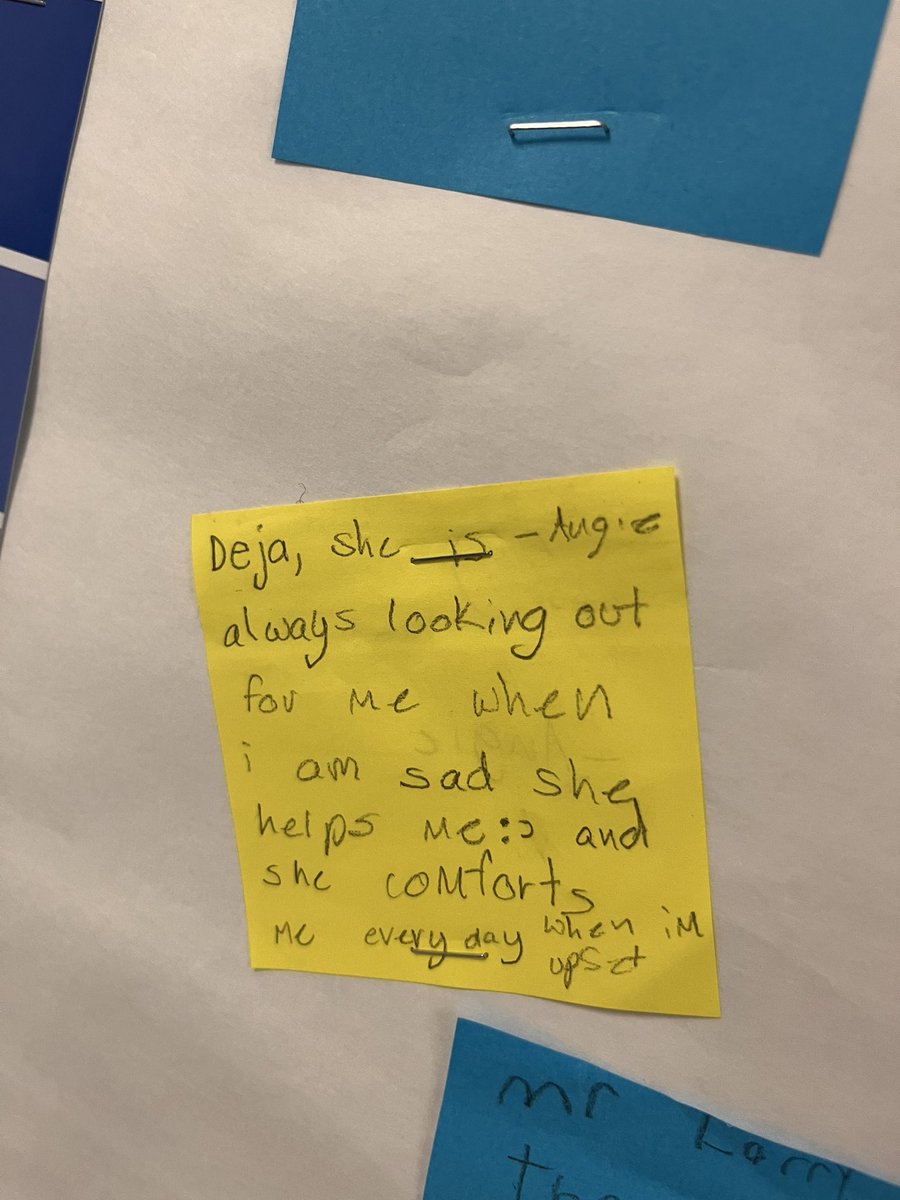 Deja, she is - Augie
always looking out
for me when
i am sad she
helps me :) and
she comforts
me every day when im
upset
mr Larry